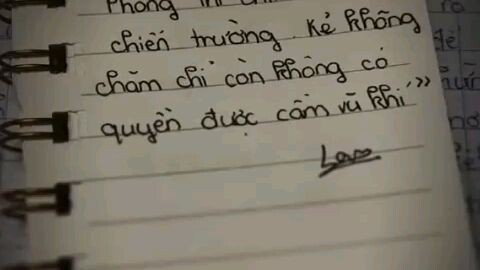 Phòng thi
chiến trường. Kẻ không
chăm chỉ còn không có
quyền được cầm vũ khí"